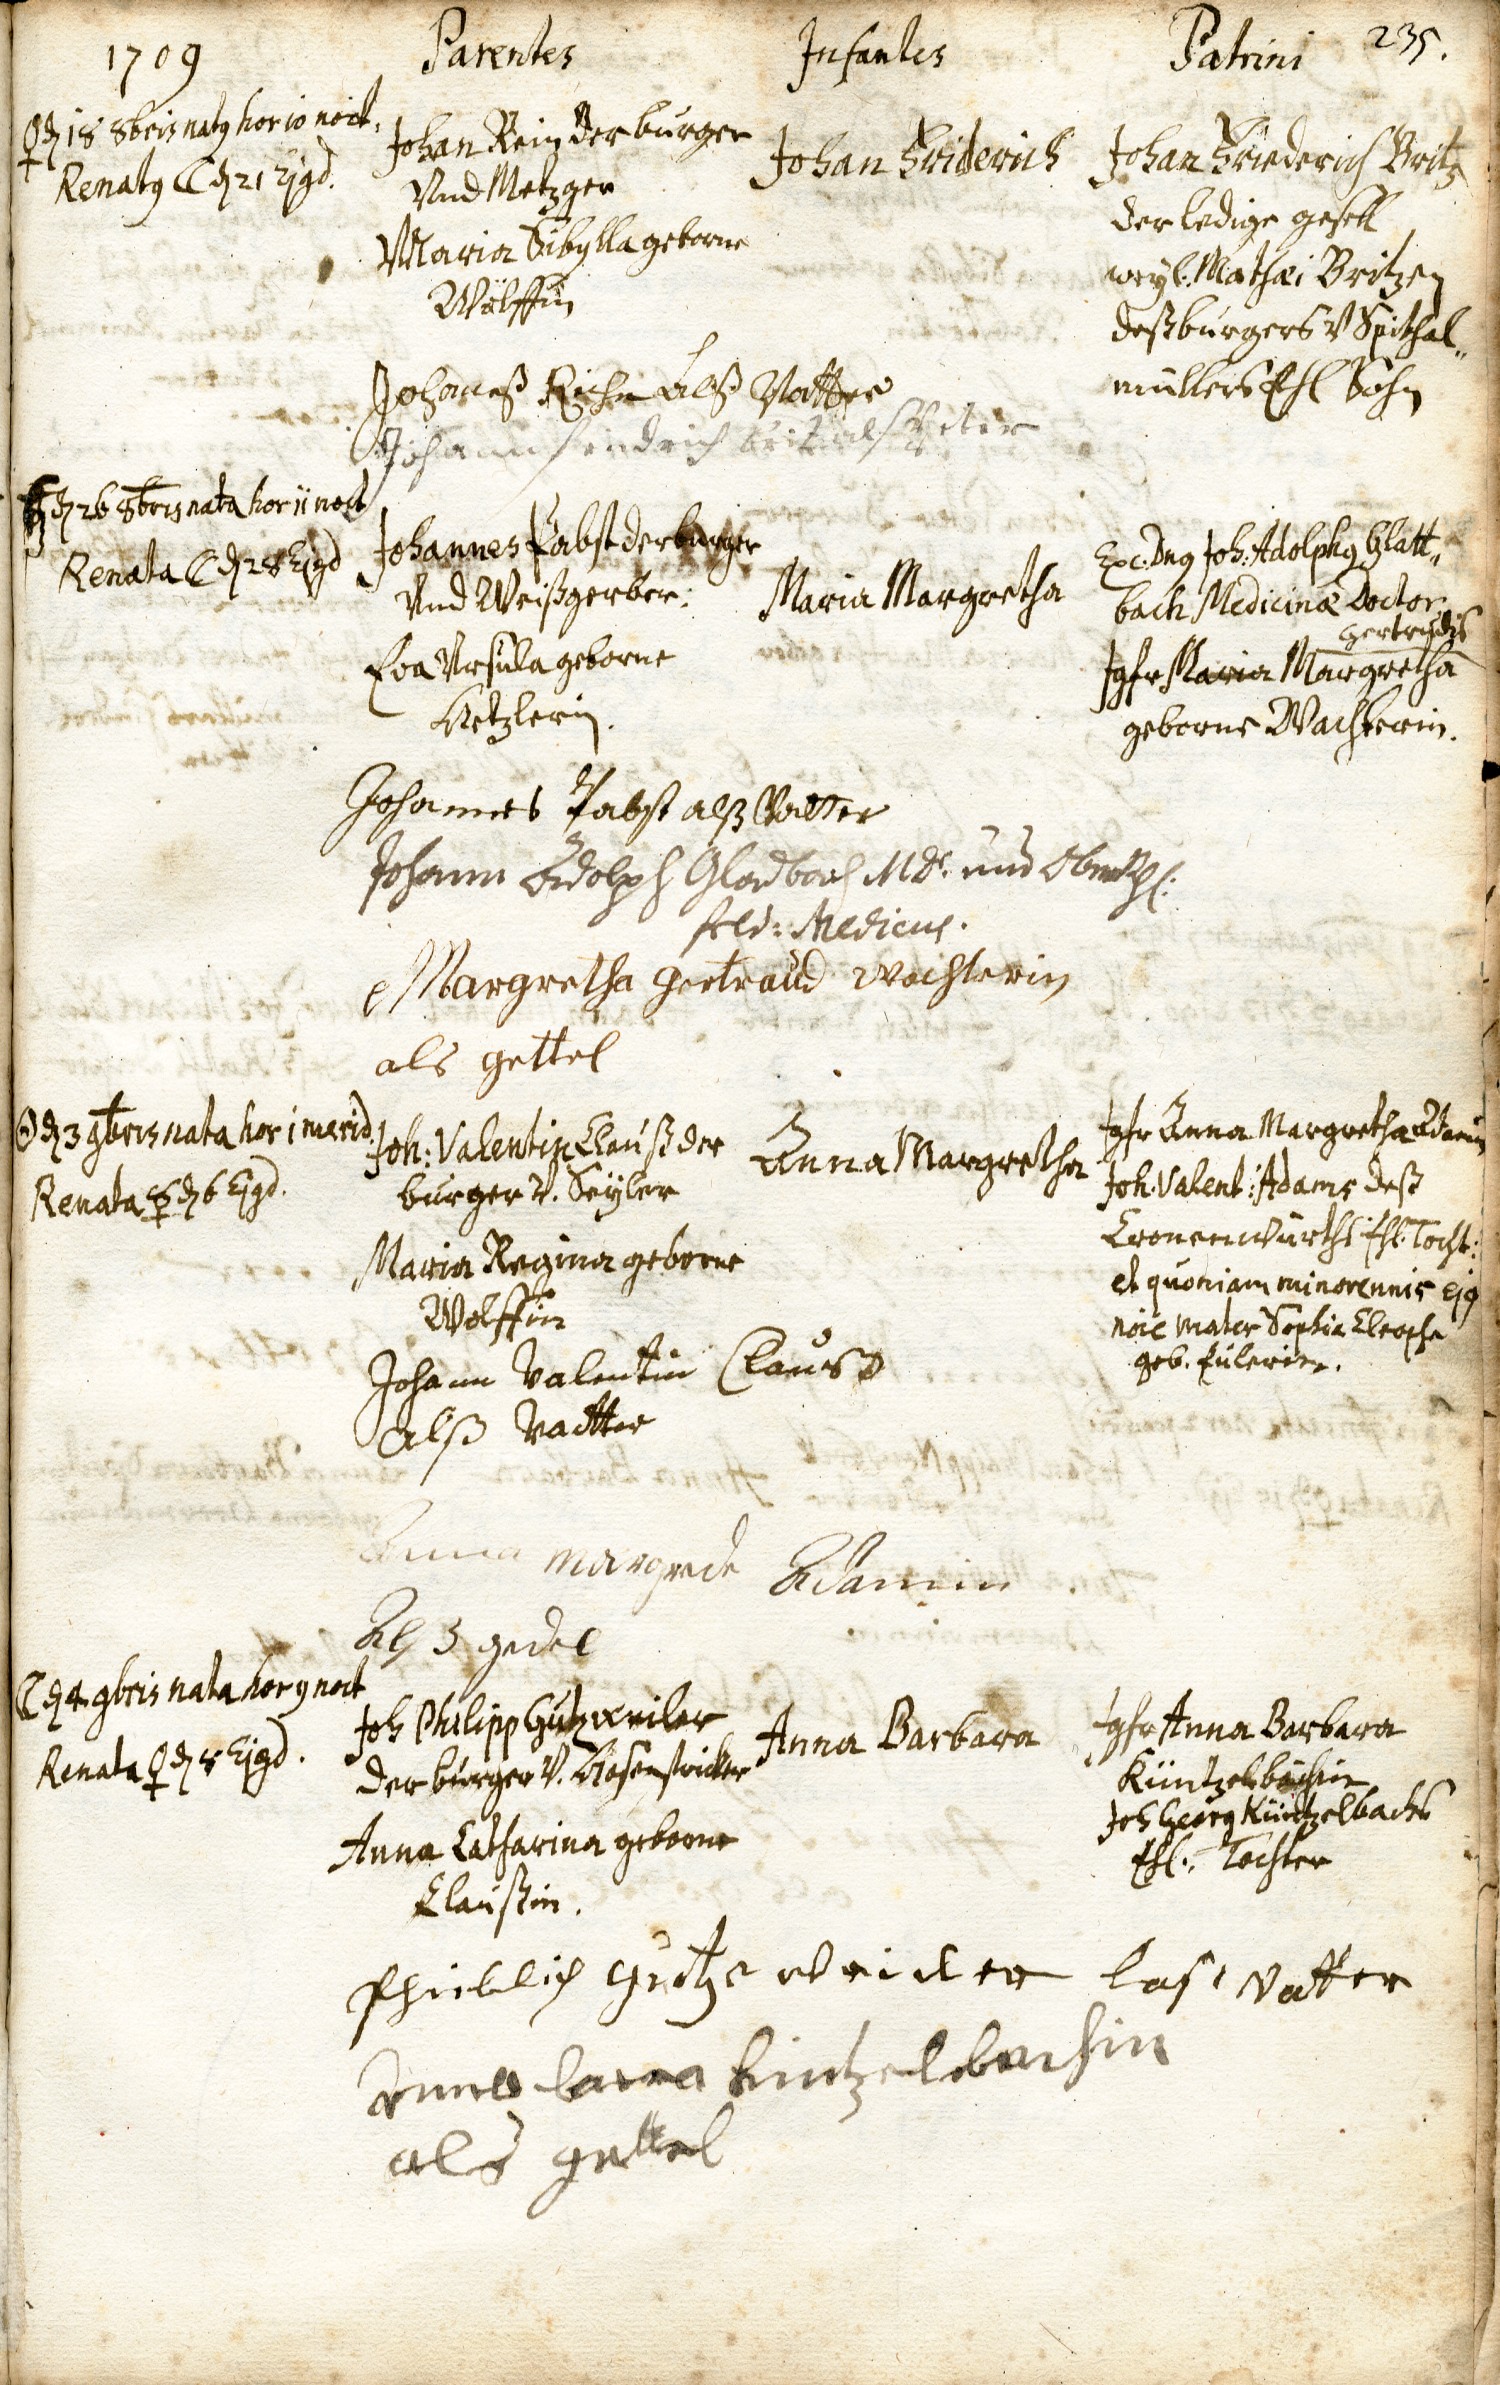 1709 Parentes Infantes Patrini 235.
♀ d 18 8bris natq hor 10 noct.
Renatq ☾ d 21 Ejqd.
Johan Rein der burger
Vnd Metzger
Maria Sibylla geborne
Wölffin
Johan Friderich
Johan Friederich Britz
der ledige gesell
weyl. Mathæi Britzen
deß burgers V Spithal„
müllers Ehl Sohn
Johaneß Rich alß Vatter
Johann Heindrich als Peter
♄ d 26 8bris nata hor 11 noct
Renata ☾ d 28 Ejqd
Johannes Pabst der burger
Vnd Weißgerber:
Eva Ursula geborne
Hetzlerin.
Maria Margretha
Exc: Dnq Joh: Adolphq Glatt„
bach Medicinæ Doctor
Gertrudis
Jgfr Maria Margretha
geborne Wachterin.
Johannes Pabst alß Vatter
Johann Adolph Gladbach MDr. und
feld: Medicus.
Margretha gertraud wachterin
als gettel
☉ d 3 9bris nata hor 1 merid.
Renata ☿ d 6 Ejqd.
Joh: Valentin Clauß der
burger V. Seyler
Maria Regina geborne
Wolffin
Anna Margretha
Jgfr Anna Margretha Adamin
Joh. Valent: Adams deß
Cronenwürths Ehl. Tocht:
et quoniam minorennis ejq
noie mater Sophia Cleophe
geb. Eulerin.
Johann Valentin Clauss
Alß Vatter
Anna margrede Adamin
Alß gedel
☾ d 4 9bris nata hor 9 noct
Renata ♀ d 8 Ejqd.
Joh Philipp Gutzweiler
der burger V. Hosenstricker
Anna Catharina geborne
Claußin.
Anna Barbara
Jgfr Anna Barbara
Küntzelbachin
Joh Georg Küntzelbachs
Ehl. Tochter
Phiellich gutze weider lase vatter
Anna barra kintzelbachin
als gettel